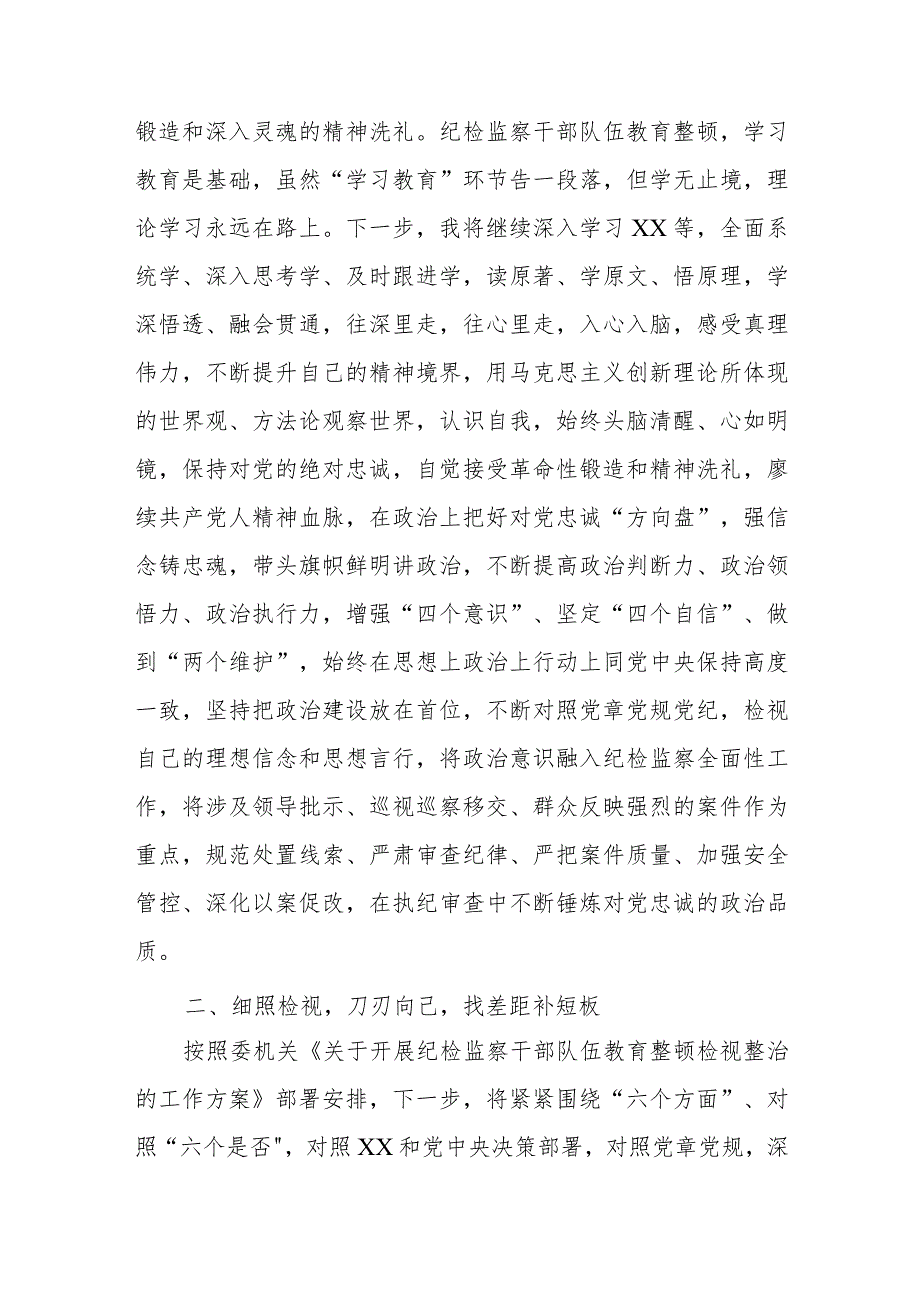 锻造和深入灵魂的精神洗礼。纪检监察干部队伍教育整顿，学习
教育是基础，虽然“学习教育”环节告一段落，但学无止境，理
论学习永远在路上。下一步，我将继续深入学习 XX 等，全面系
统学、深入思考学、及时跟进学，读原著、学原文、悟原理，学
深悟透、融会贯通，往深里走，往心里走，入心入脑，感受真理
伟力，不断提升自己的精神境界，用马克思主义创新理论所体现
的世界观、方法论观察世界，认识自我，始终头脑清醒、心如明
镜，保持对党的绝对忠诚，自觉接受革命性锻造和精神洗礼，廖
续共产党人精神血脉，在政治上把好对党忠诚“方向盘”，强信
念铸忠魂，带头旗帜鲜明讲政治，不断提高政治判断力、政治领
悟力、政治执行力，增强“四个意识”、坚定“四个自信”、做
到“两个维护”，始终在思想上政治上行动上同党中央保持高度
一致，坚持把政治建设放在首位，不断对照党章党规党纪，检视
自己的理想信念和思想言行，将政治意识融入纪检监察全面性工
作，将涉及领导批示、巡视巡察移交、群众反映强烈的案件作为
重点，规范处置线索、严肃审查纪律、严把案件质量、加强安全
管控、深化以案促改，在执纪审查中不断锤炼对党忠诚的政治品
质。
二、细照检视，刀刃向己，找差距补短板
按照委机关《关于开展纪检监察干部队伍教育整顿检视整治
的工作方案》部署安排，下一步，将紧紧围绕“六个方面”、对
照“六个是否"，对照 XX 和党中央决策部署，对照党章党规，深